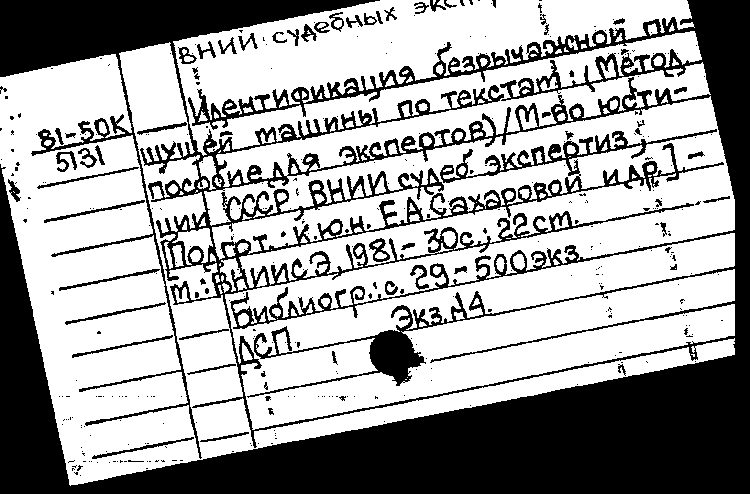 ВНИИ судебных
Идентификация безрычажной пи-
81-50К
5131
шущей машины по текстам: (Метод.
пособие для экспертов) / М-во юсти-
ции СССР; ВНИИ судеб. экспертиз;
[Подгот.: к.ю.н. Е.А.Сахаровой и др.] -
М.: ВНИИСЭ, 1981.- 30с.; 22 ст.
Библиогр.: с. 29.- 500 экз.
ДСП. Экз.№14.